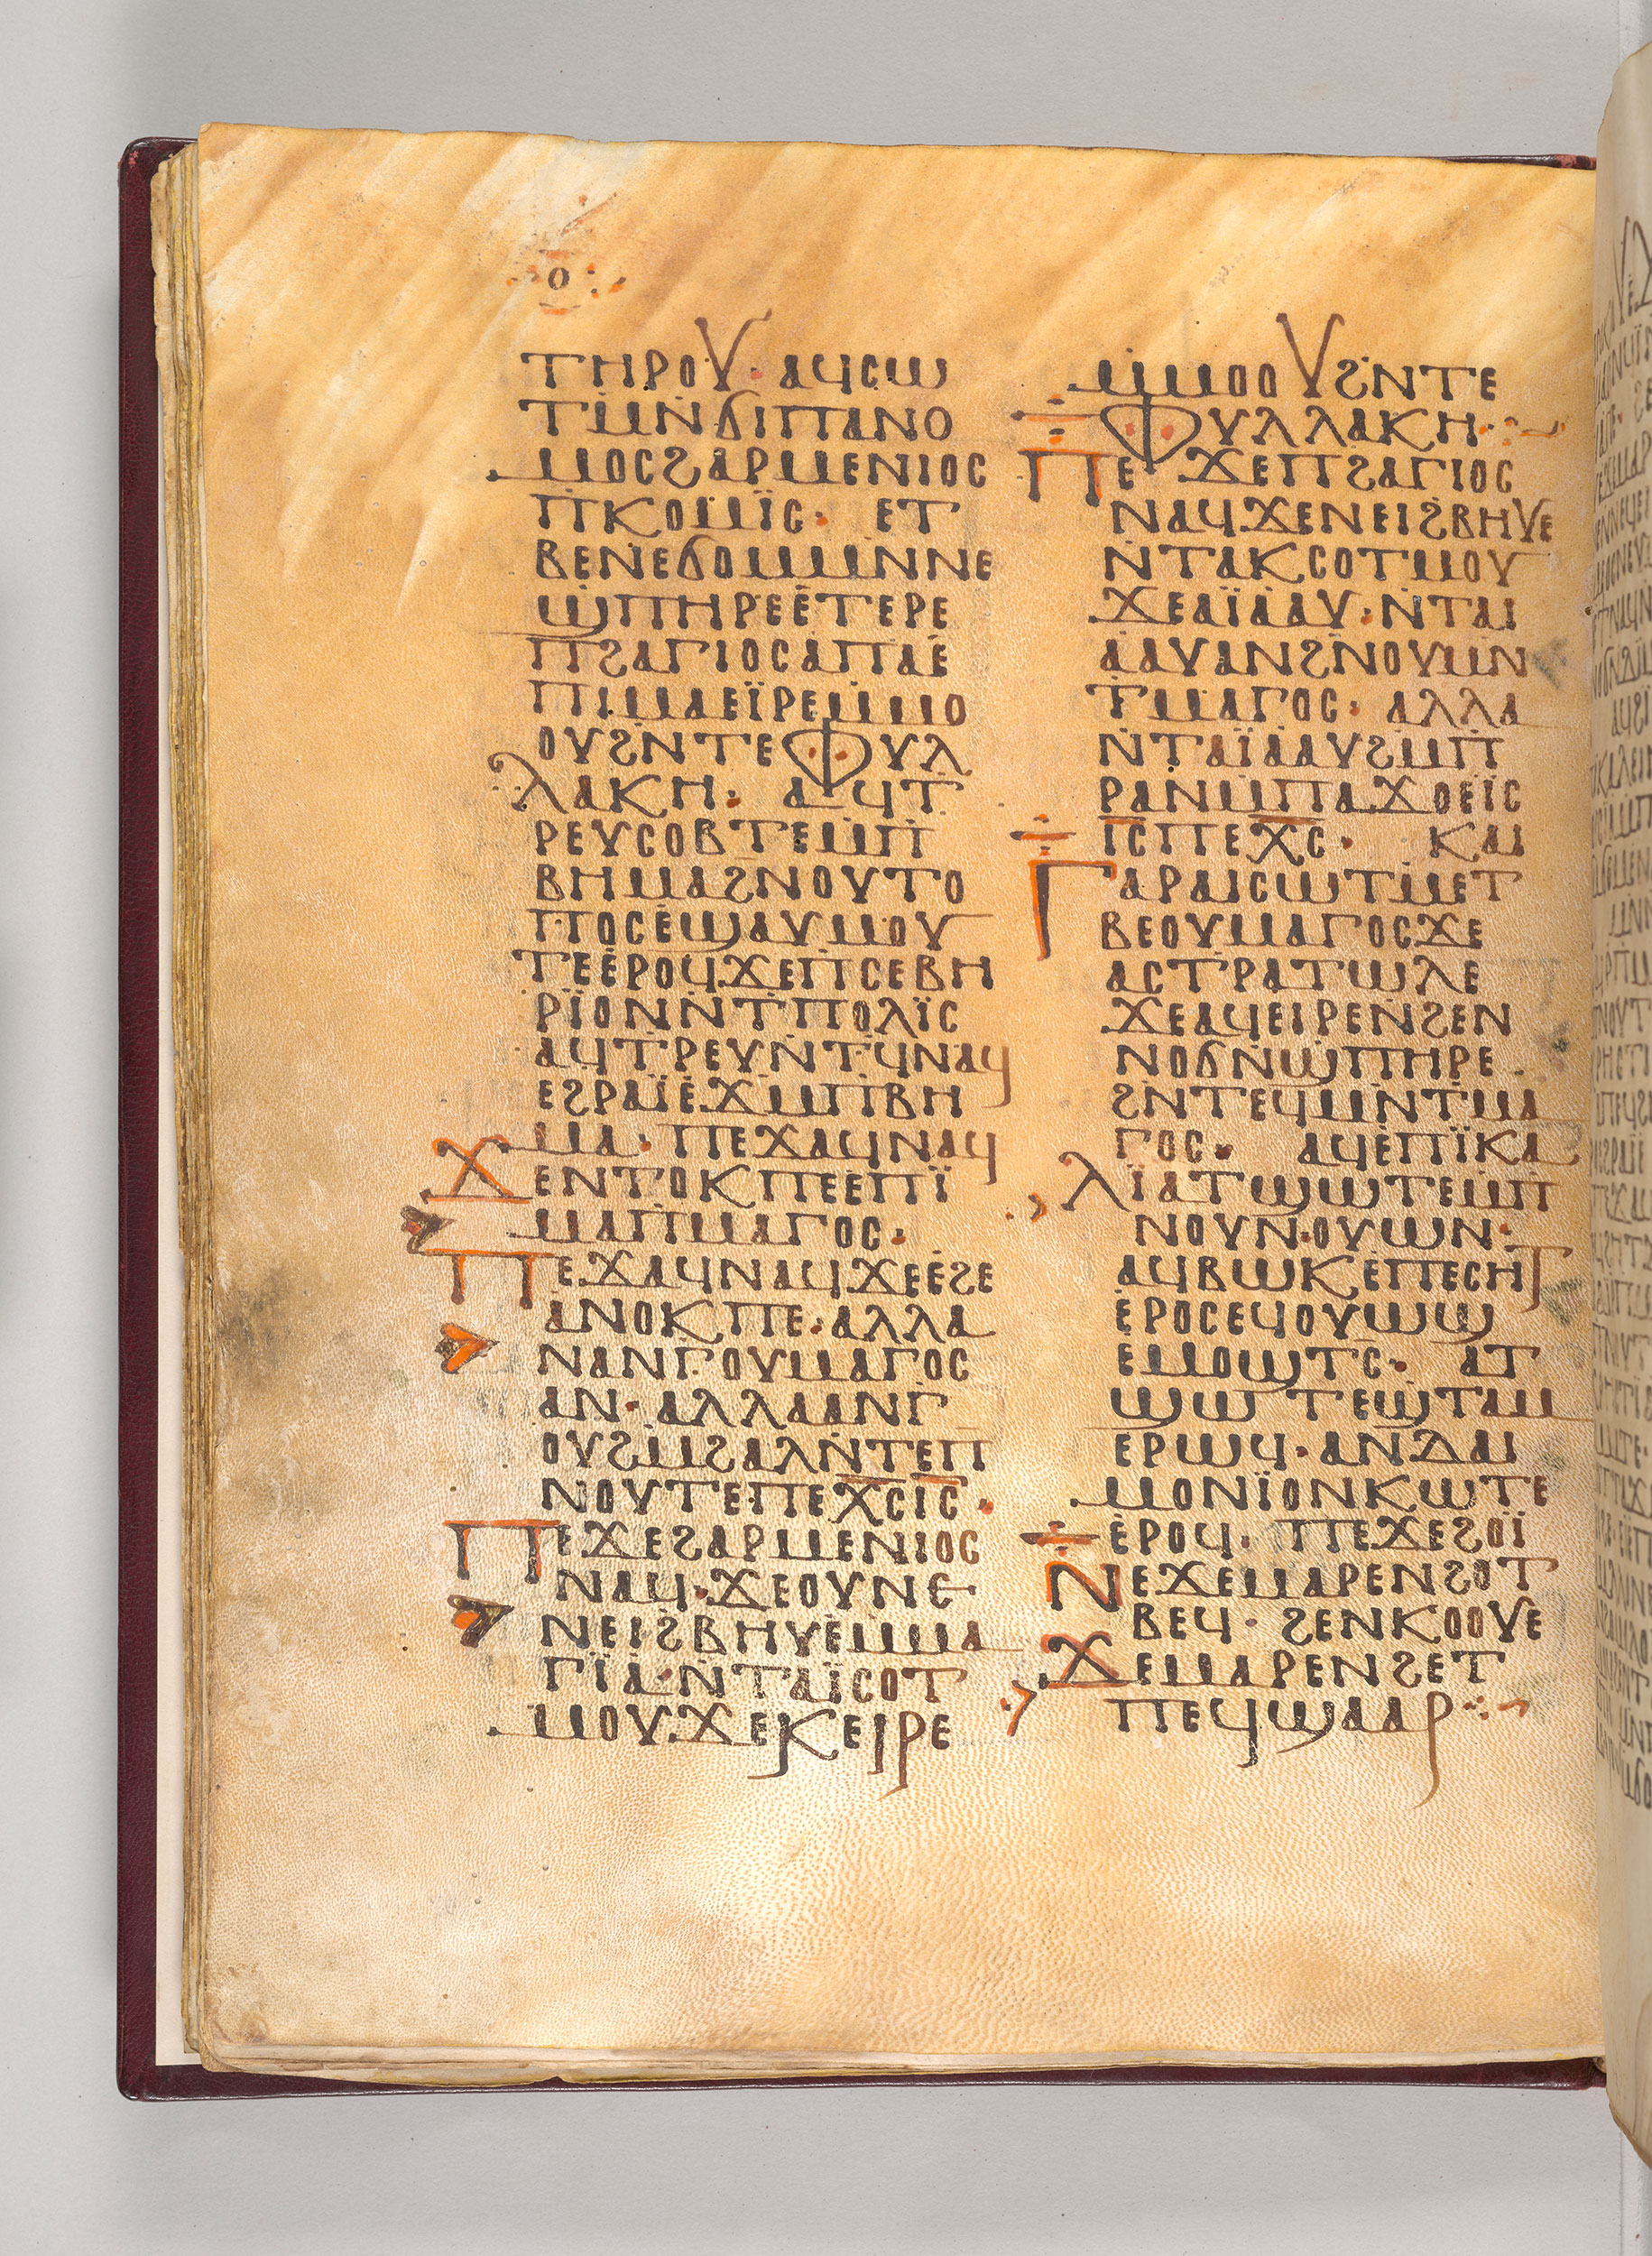 ⲟ
ⲧⲏⲣⲟⲩ· ⲁϥⲥⲱ
ⲧⲙ̇ⲛ̇ϭⲓⲡⲁⲛⲟ
ⲙⲟⲥϩⲁⲣⲙⲉⲛⲓⲟⲥ
ⲡ̇ⲕⲟⲙⲓ̈ⲥ· ⲉⲧ
ⲃⲉⲛⲉϭⲟⲙⲙⲛ̇ⲛⲉ
ϣ̇ⲡⲏⲣⲉⲉ̇ⲧⲉⲣⲉ
ⲡϩⲁⲅⲓⲟⲥⲁ̇ⲡⲁⲉ̇
ⲡⲓⲙⲁⲉⲓ̈ⲣⲉⲙ̇ⲙⲟ
ⲟⲩϩⲛ̇ⲧⲉⲫⲩⲗ
ⲗⲁⲕⲏ· ⲁϥⲧ
ⲣⲉⲩⲥⲟⲃⲧⲉⲙ̇ⲡ̇
ⲃⲏⲙⲁϩⲛⲟⲩⲧⲟ
ⲡⲟⲥⲉ̇ϣⲁⲩⲙⲟⲩ
ⲧⲉⲉ̇ⲣⲟϥϫⲉⲡⲥⲉⲃⲏ
ⲣⲓ̈ⲟⲛⲛ̇ⲧⲡⲟⲗⲓ̈ⲥ
ⲁϥⲧⲣⲉⲩⲛ̇ⲧϥ̇ⲛⲁϥ
ⲉϩⲣⲁⲓ̈ⲉ̇ϫⲙ̇ⲡⲃⲏ
ⲙⲁ· ⲡⲉϫⲁϥⲛⲁϥ
ϫⲉⲛⲧⲟⲕⲡⲉⲉⲡⲓ̈
ⲙⲁⲡⲙⲁⲅⲟⲥ·
ⲡⲉϫⲁϥⲛⲁϥϫⲉⲉ̇ϩⲉ
ⲁ̇ⲛⲟⲕⲡⲉ· ⲁⲗⲗⲁ
ⲛⲁⲛⲅ̇ⲟⲩⲙⲁⲅⲟⲥ
ⲁⲛ· ⲁⲗⲗⲁⲁⲛⲅ̇
ⲟⲩϩⲙ̇ϩⲁⲗⲛ̇ⲧⲉⲡ
ⲛⲟⲩⲧⲉ·ⲡⲉⲭ̅ⲥ̅ⲓ̅ⲥ̅·
ⲡⲉϫⲉϩⲁⲣⲙⲉⲛⲓⲟⲥ
ⲛⲁϥ·ϫⲉⲟⲩⲛⲉ
ⲛⲉⲓϩⲃⲏⲩⲉ̇ⲙ̇ⲙⲁ
ⲅⲓ̈ⲁ·ⲛ̇ⲧⲁⲓ̈ⲥⲟⲧ
ⲙⲟⲩϫⲉⲕⲉⲓⲣⲉ
ⲙ̇ⲙⲟⲟⲩϩⲛ̇ⲧⲉ
ⲫⲩⲗⲗⲁⲕⲏ·
ⲡⲉϫⲉⲡϩⲁⲅⲓⲟⲥ
ⲛⲁϥϫⲉⲛⲉⲓϩⲃⲏⲩⲉ
ⲛ̇ⲧⲁⲕⲥⲟⲧⲙⲟⲩ
ϫⲉⲁⲓ̈ⲁⲁⲩ·ⲛ̇ⲧⲁⲓ
ⲁ̇ⲁⲩⲁⲛϩⲛ̇ⲟⲩⲙⲛ
ⲧ̇ⲙⲁⲅⲟⲥ· ⲁⲗⲗⲁ
ⲛ̇ⲧⲁⲓ̈ⲁ̇ⲁⲩϩⲙ̇ⲡ
ⲣⲁⲛⲙ̇ⲡⲁϫⲟⲉⲓ̈ⲥ
ⲓ̅ⲥ̅ⲡⲉⲭ̅ⲥ̅· ⲕⲁⲓ
ⲅⲁⲣⲁⲓⲥⲱⲧⲙ̇ⲉⲧ
ⲃⲉⲟⲩⲙⲁⲅⲟⲥϫⲉ
ⲁⲥⲧⲣⲁⲧⲱⲗⲉ
ϫⲉⲁϥⲉⲓⲣⲉⲛ̇ϩⲉⲛ
ⲛⲟϭⲛ̇ϣⲡⲏⲣⲉ
ϩⲛ̇ⲧⲉϥⲙⲛ̇ⲧⲙⲁ
ⲅⲟⲥ· ⲁϥⲉ̇ⲡⲓ̈ⲕⲁ
ⲗⲓ̈ⲁⲧϣⲱⲧⲉⲙ̇ⲡ
ⲛⲟⲩⲛ·ⲟⲩⲱⲛ·
ⲁϥⲃⲱⲕⲉ̇ⲡⲉⲥⲏⲧ
ⲉ̇ⲣⲟⲥⲉϥⲟⲩⲱϣ
ⲉ̇ⲙⲟϣⲧⲥ̇· ⲁⲧ
ϣⲱⲧⲉϣ̇ⲧⲁⲙ
ⲉⲣⲱϥ·ⲁⲛⲇⲁⲓ
ⲙⲟⲛⲓ̈ⲟⲛⲕⲱⲧⲉ
ⲉ̇ⲣⲟϥ· ⲡⲉϫⲉϩⲟⲓ̈
ⲛⲉϫⲉⲙⲁⲣⲉⲛϩⲟⲧ
ⲃⲉϥ· ϩⲉⲛⲕⲟⲟⲩⲉ
ϫⲉⲙⲁⲣⲉⲛϩⲉⲧ
ⲡⲉϥϣⲁⲁⲣ